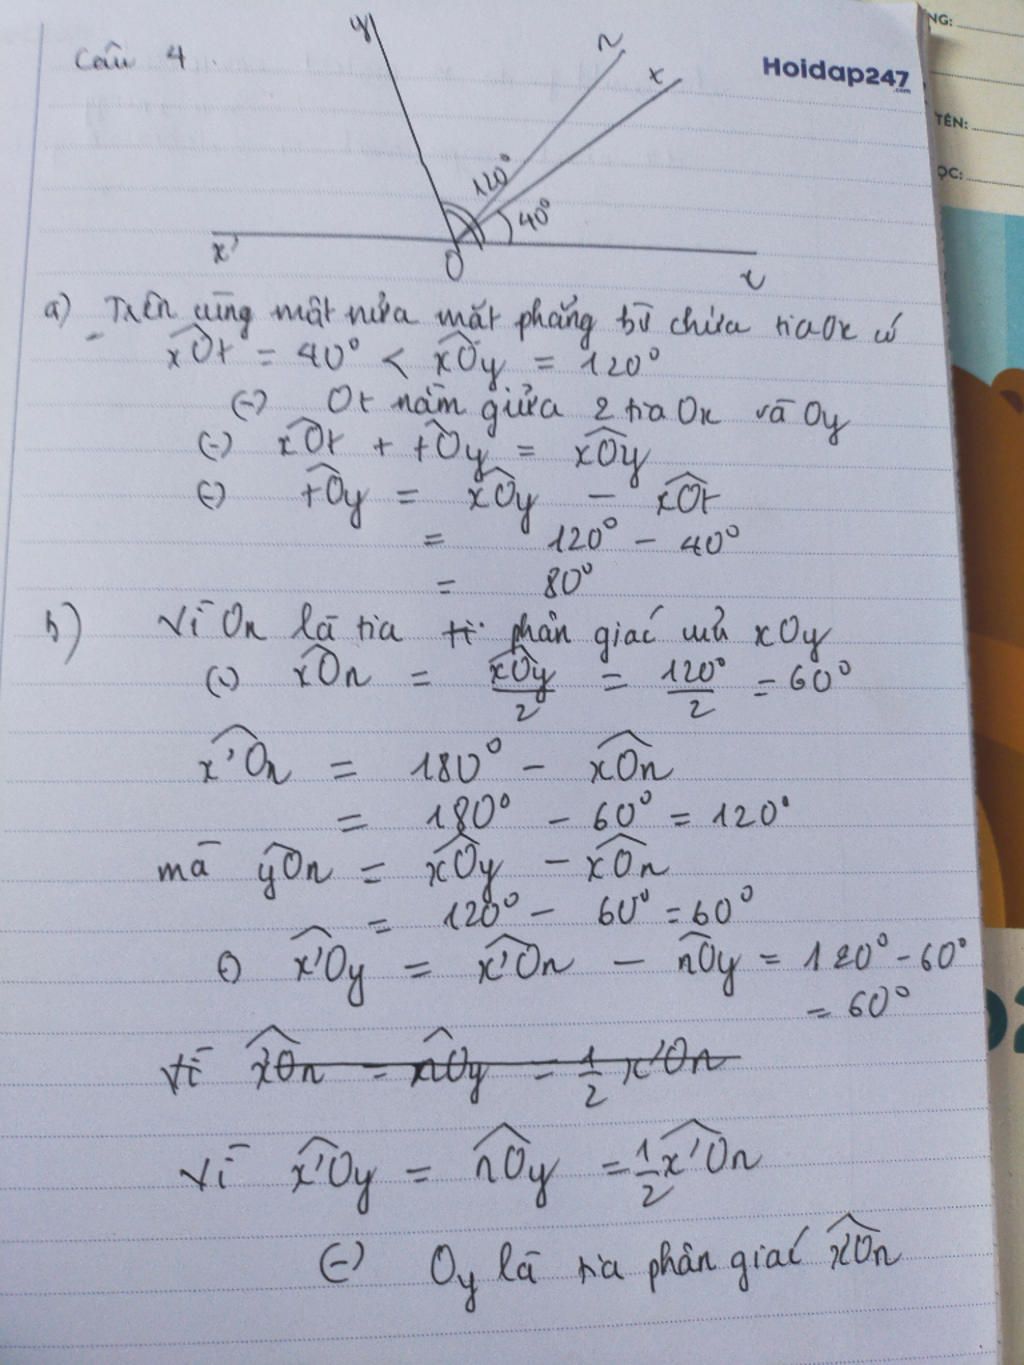 Câu 4.
y
n
x
Hoidap247
.com
NG:
TÊN:
ỌC:
120°
40°
x'
O
x
a) Trên cùng một nửa mặt phẳng bờ chứa tia Ox có
xOt = 40° < xOy = 120°
(=) Ot nằm giữa 2 tia Ox và Oy
(=) xOt + tOy = xOy
(=) tOy = xOy - xOt
= 120° - 40°
= 80°
b) Vì On là tia phân giác của xOy
(=) xOn = xOy/2 = 120°/2 = 60°
x'On = 180° - xOn
= 180° - 60° = 120°
mà yOn = xOy - xOn
= 120° - 60° = 60°
(=) x'Oy = x'On - nOy = 120° - 60°
= 60°
Vì x'On = nOy = 1/2 x'On
Vì x'Oy = nOy = 1/2 x'On
(=) Oy là tia phân giác x'On